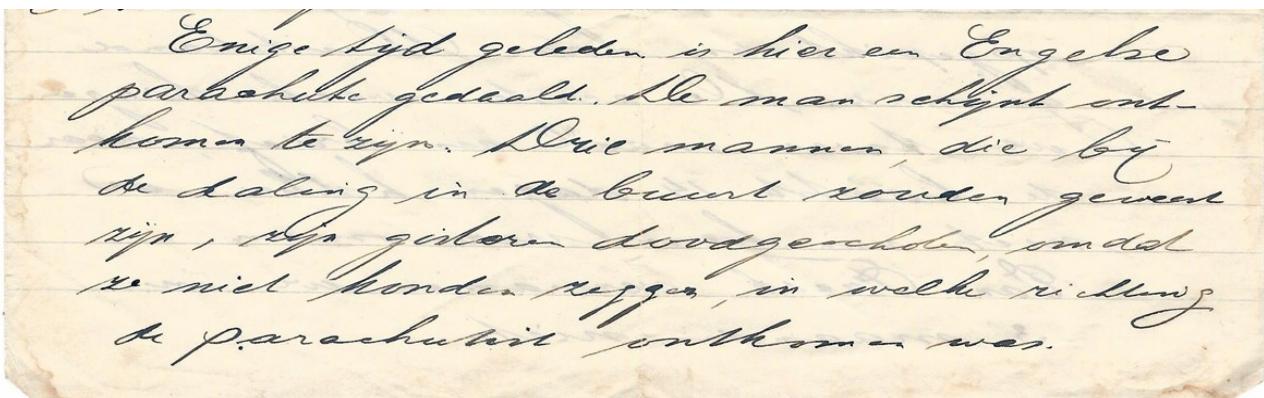 Enige tijd geleden is hier een Engelse
parachute gedaald. De man schijnt ont-
komen te zijn. Drie mannen, die bij
de daling in de buurt zouden geweest
zijn, zijn gisteren doodgeschoten, omdat
ze niet konden zeggen, in welke richting
de parachutist ontkomen was.